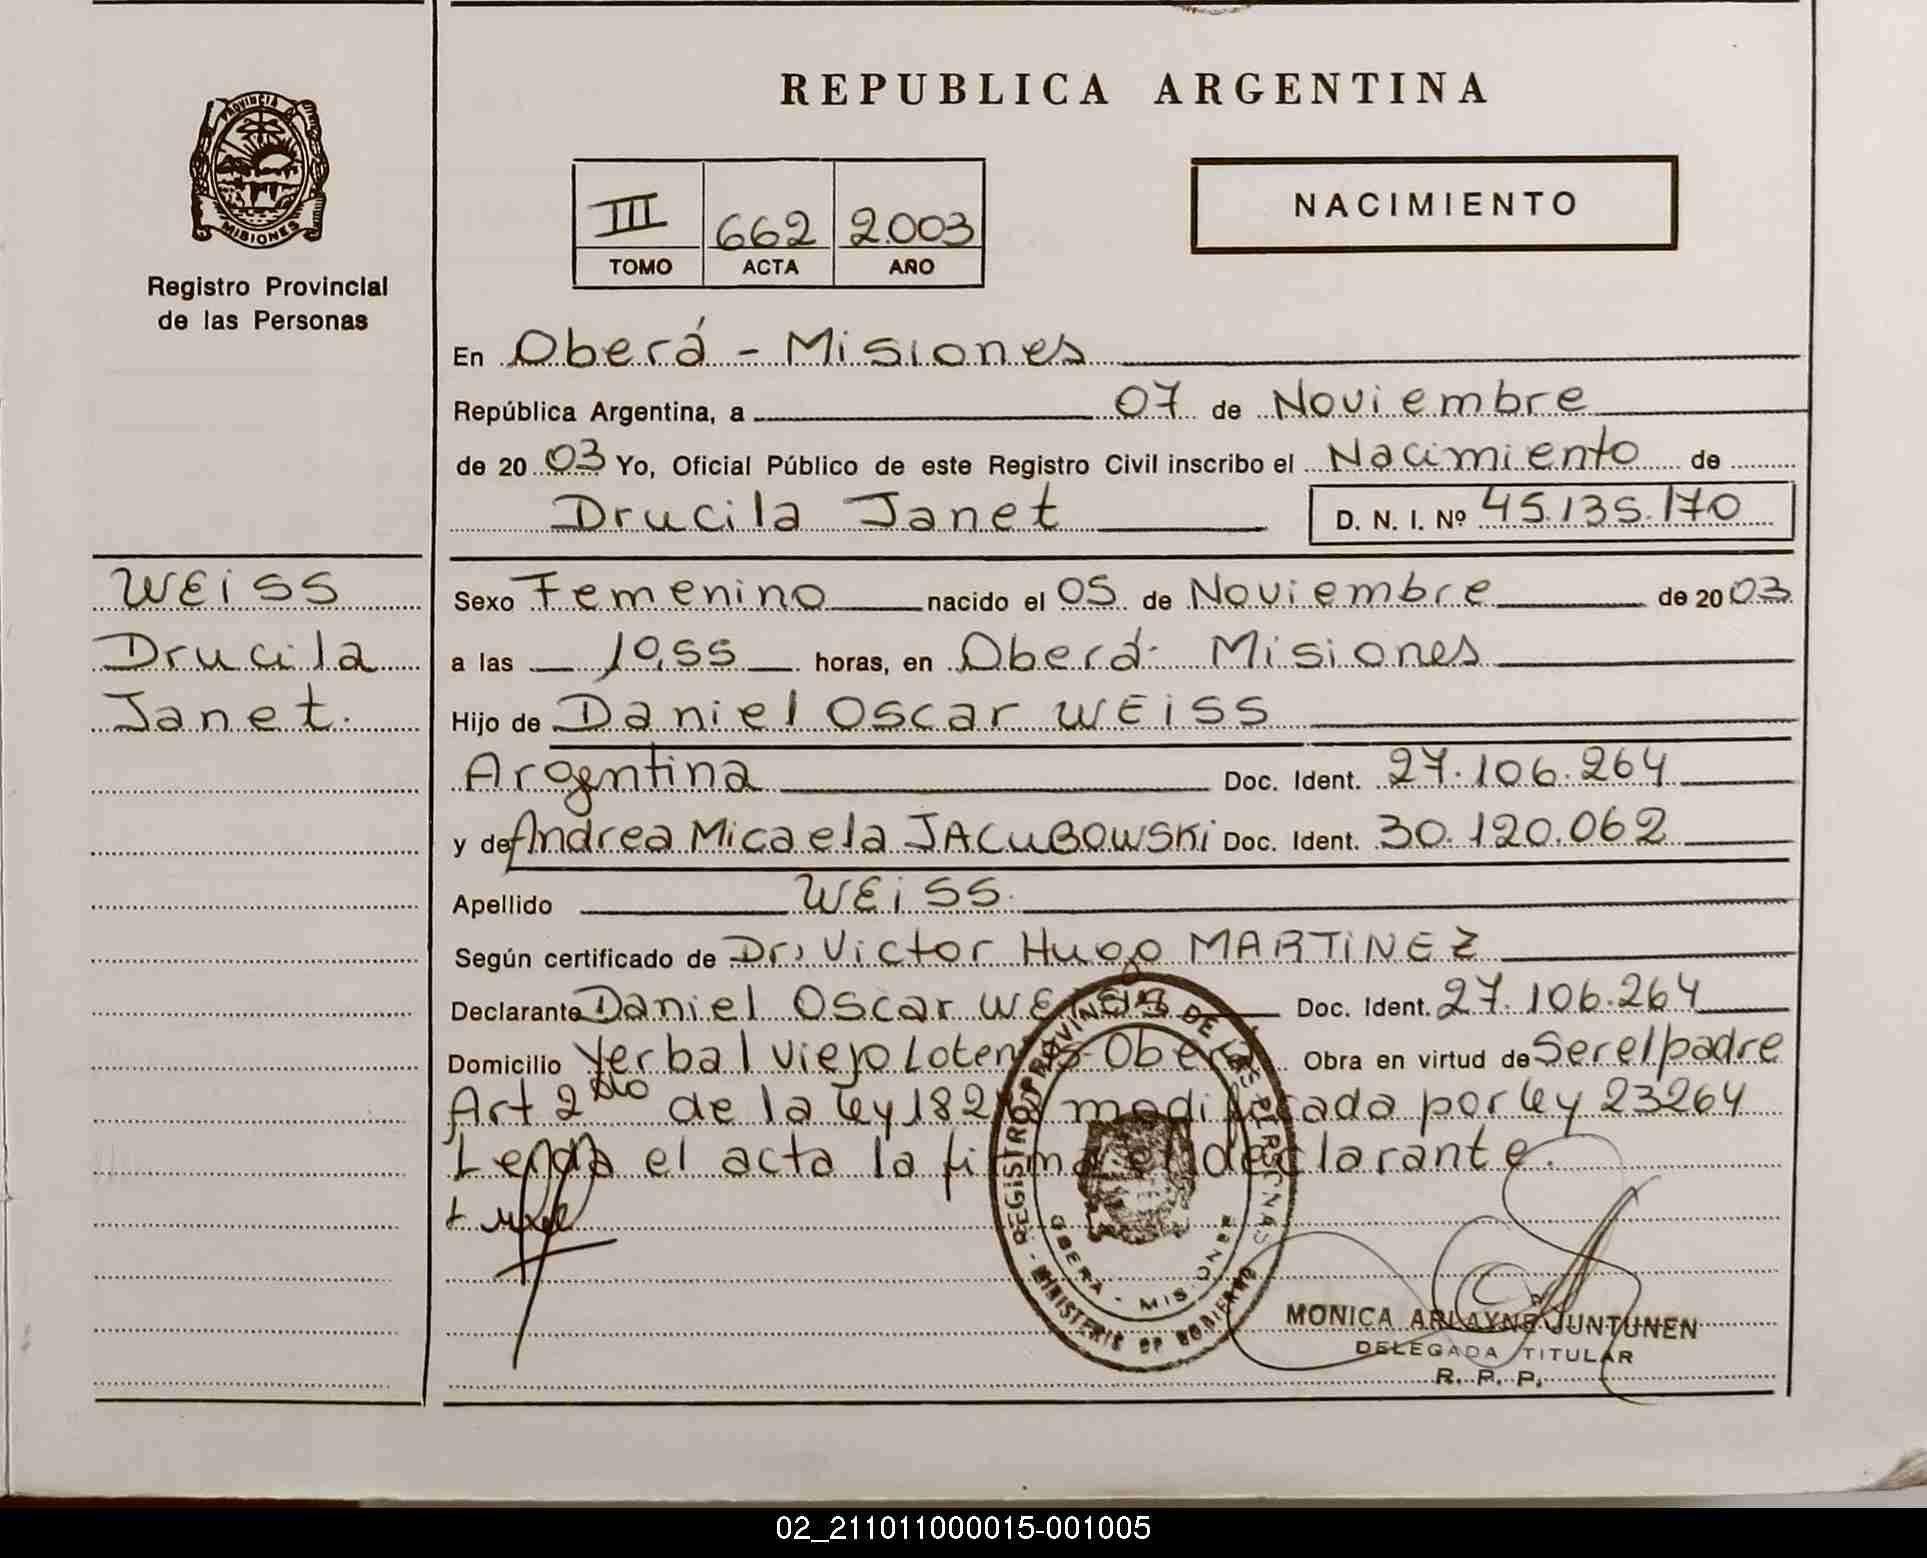 REPUBLICA ARGENTINA
PROVINCIA DE
MISIONES
Registro Provincial
de las Personas
III 662 2.003
TOMO ACTA AÑO
NACIMIENTO
En Oberá - Misiones
República Argentina, a 07 de Noviembre
de 20 03 Yo, Oficial Público de este Registro Civil inscribo el Nacimiento de
Drucila Janet D. N. I. Nº 45.135.170
WEiSS
Drucila
Janet.
Sexo Femenino nacido el 05 de Noviembre de 20 03
a las 10,55 horas, en Oberá- Misiones
Hijo de Daniel Oscar WEiSS
Argentina Doc. Ident. 27.106.264
y de Andrea Micaela JACUBOWSKi Doc. Ident. 30.120.062
Apellido WEiSS.
Según certificado de Dr, Victor Hugo MARTiNEZ
Declarante Daniel Oscar WEiSS Doc. Ident. 27.106.264
Domicilio Yerbal Viejo Oberá Obra en virtud de Ser el padre
Art 2do de la ley modificada por ley 23264
Leida el acta la firma el declarante.
REGISTRO PROVINCIAL DE LAS PERSONAS
OBERÁ - MISIONES
MINISTERIO DE GOBIERNO
MONICA ARLAYNE JUNTUNEN
DELEGADA TITULAR
R. P. P.
02_211011000015-001005